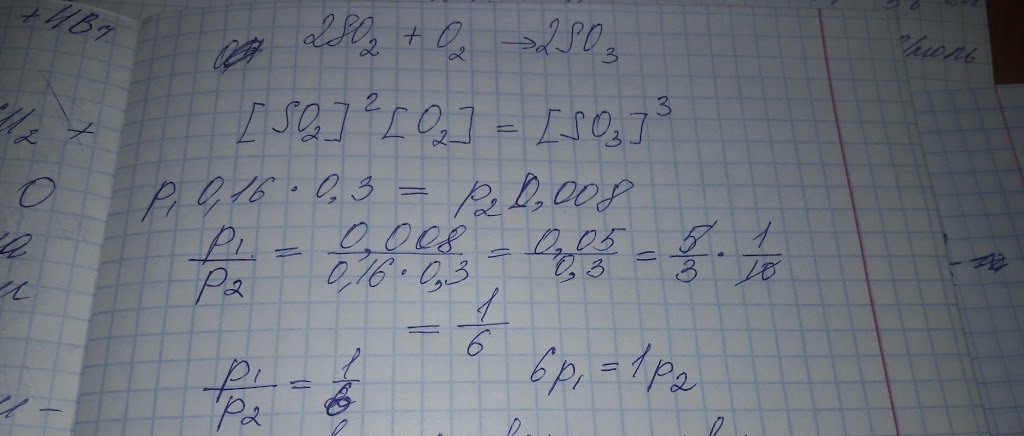 +HBr
2SO₂ + O₂ → 2SO₃
[SO₂]² [O₂] = [SO₃]³
p₁ 0,16 · 0,3 = p₂ 0,008
p₁/p₂ = 0,008/0,16 · 0,3 = 0,05/0,3 = 5/3 · 1/10
= 1/6
p₁/p₂ = 1/6
6p₁ = 1p₂